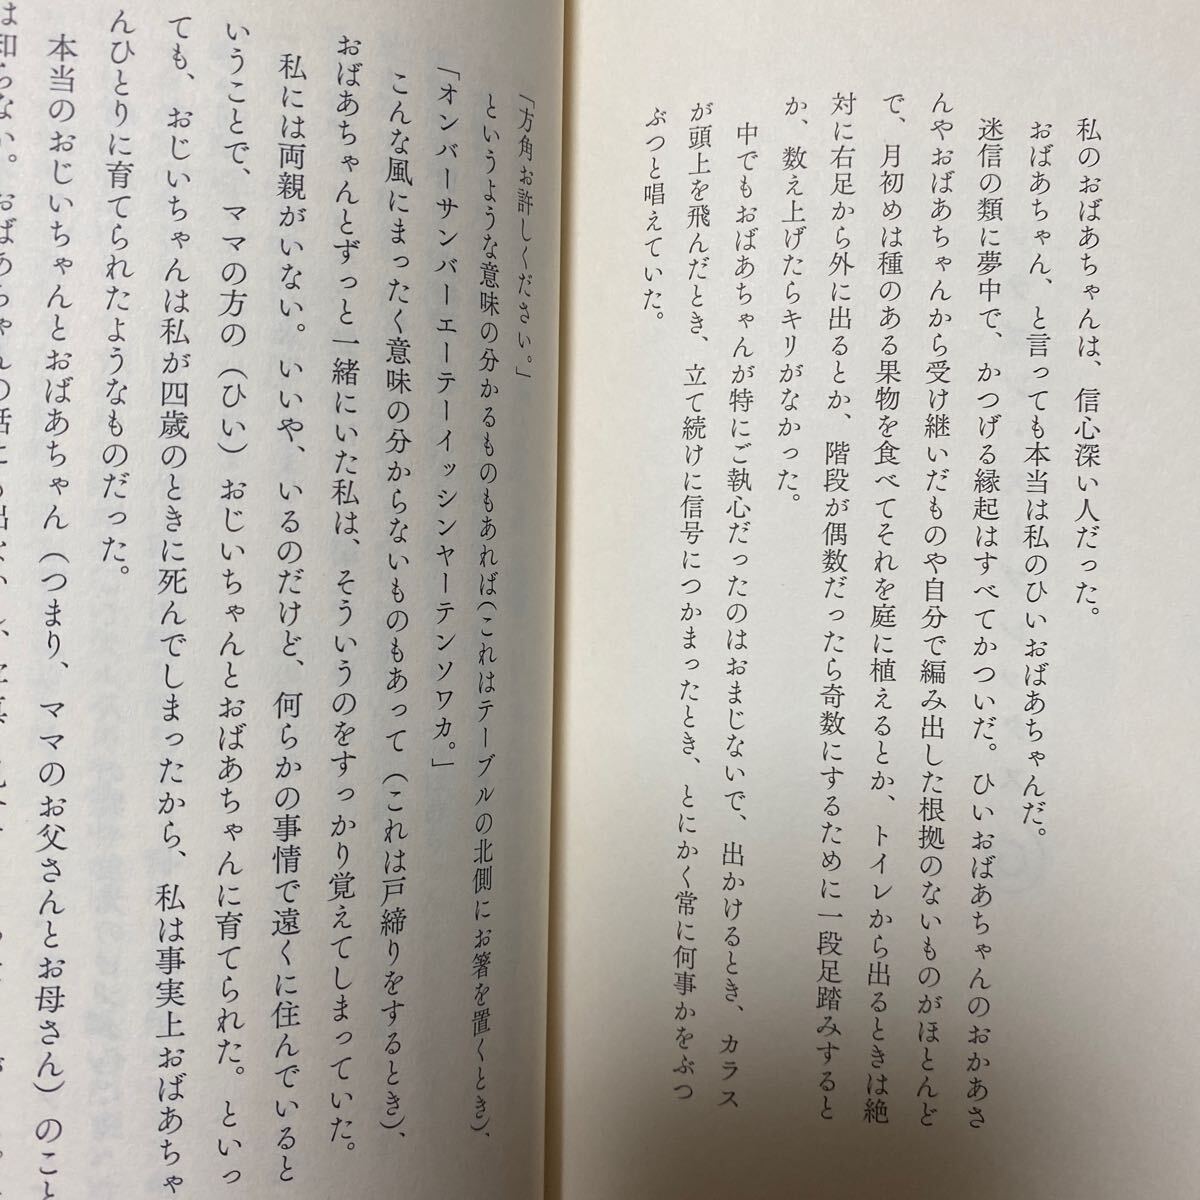 私のおばあちゃんは、信心深い人だった。
おばあちゃん、と言っても本当は私のひいおばあちゃんだ。
迷信の類に夢中で、かつげる縁起はすべてかついだ。ひいおばあちゃんのおかあさ
んやおばあちゃんから受け継いだものや自分で編み出した根拠のないものがほとんど
で、月初めは種のある果物を食べてそれを庭に植えるとか、トイレから出るときは絶
対に右足から外に出るとか、階段が偶数だったら奇数にするために一段足踏みすると
か、数え上げたらキリがなかった。
中でもおばあちゃんが特にご執心だったのはおまじないで、出かけるとき、カラス
が頭上を飛んだとき、立て続けに信号につかまったとき、とにかく常に何事かをぶつ
ぶつと唱えていた。
「方角お許しください。」
というような意味の分かるものもあれば(これはテーブルの北側にお箸を置くとき)、
「オンバーサンバーエーテーイッシンヤーテンソワカ。」
こんな風にまったく意味の分からないものもあって(これは戸締りをするとき)、
おばあちゃんとずっと一緒にいた私は、そういうのをすっかり覚えてしまっていた。
私には両親がいない。いいや、いるのだけど、何らかの事情で遠くに住んでいると
いうことで、ママの方の(ひい)おじいちゃんとおばあちゃんに育てられた。といっ
ても、おじいちゃんは私が四歳のときに死んでしまったから、私は事実上おばあちゃ
んひとりに育てられたようなものだった。
本当のおじいちゃんとおばあちゃん(つまり、ママのお父さんとお母さん)のこと
は知らない。おばあちゃんの話にも出ないし、写真